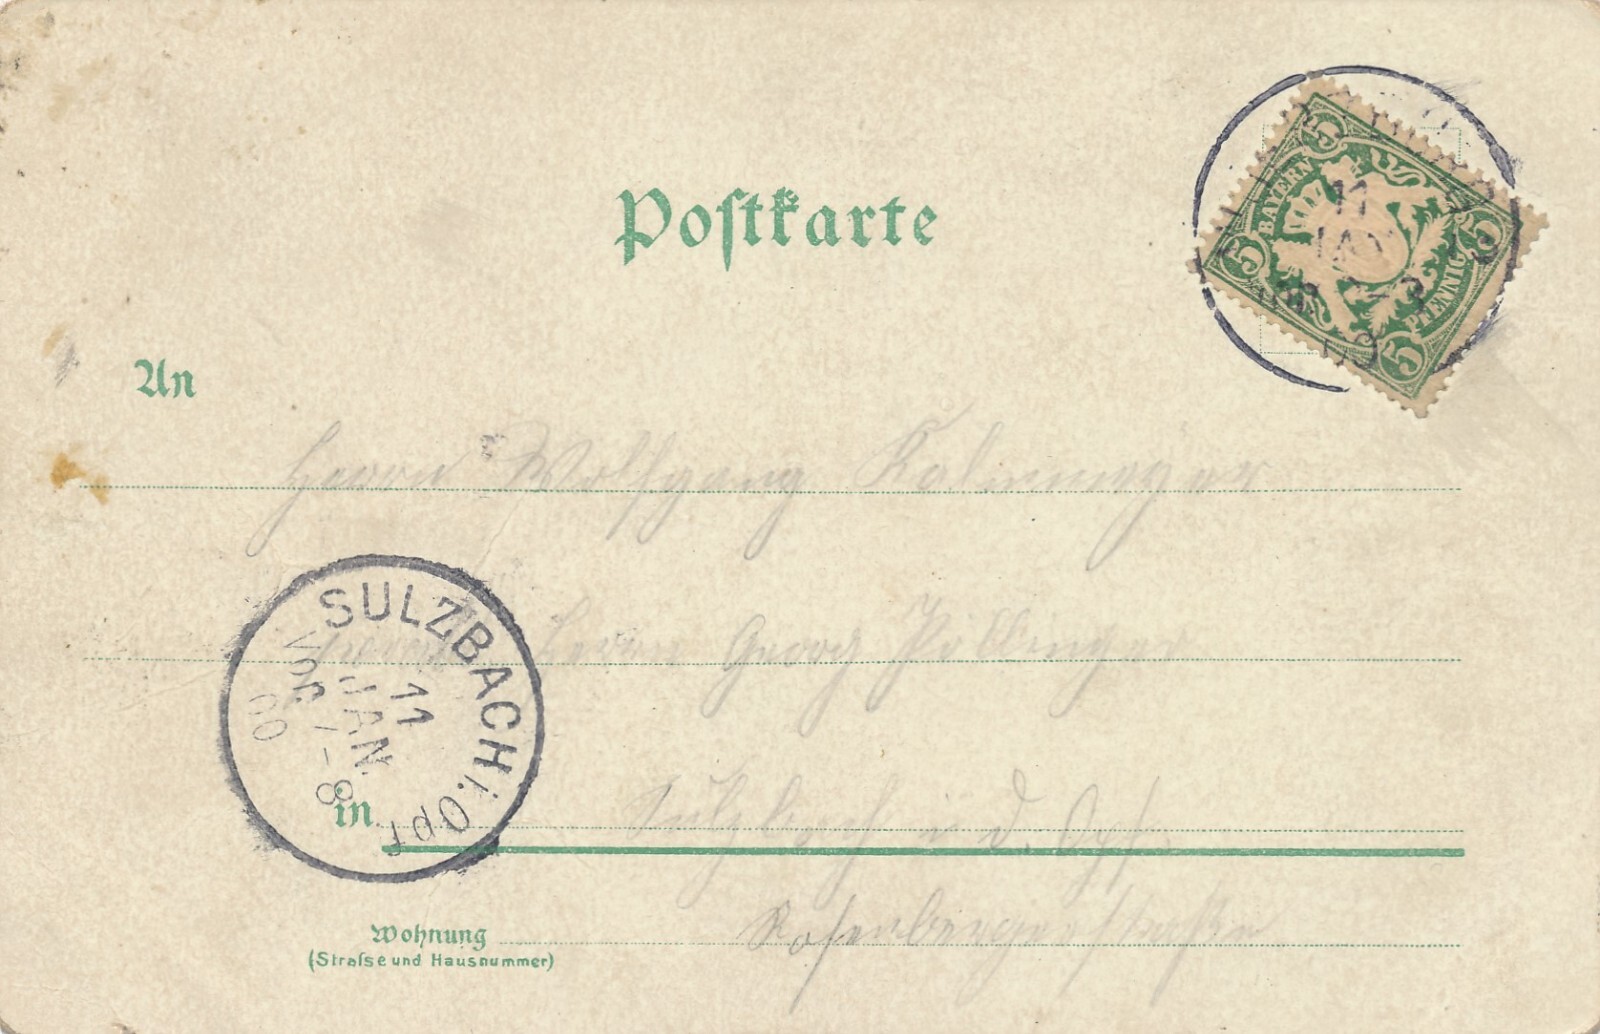 Postkarte
5 5 5 5
BAYERN
PFENNIG
11
JAN
An
Herrn Wolfgang
Herrn Georg
SULZBACH i. Opf
11
JAN
Vor 7-8
00
in Sulzbach i. d. Opf.
Wohnung Rosenbergerstraße
(Straſse und Hausnummer)